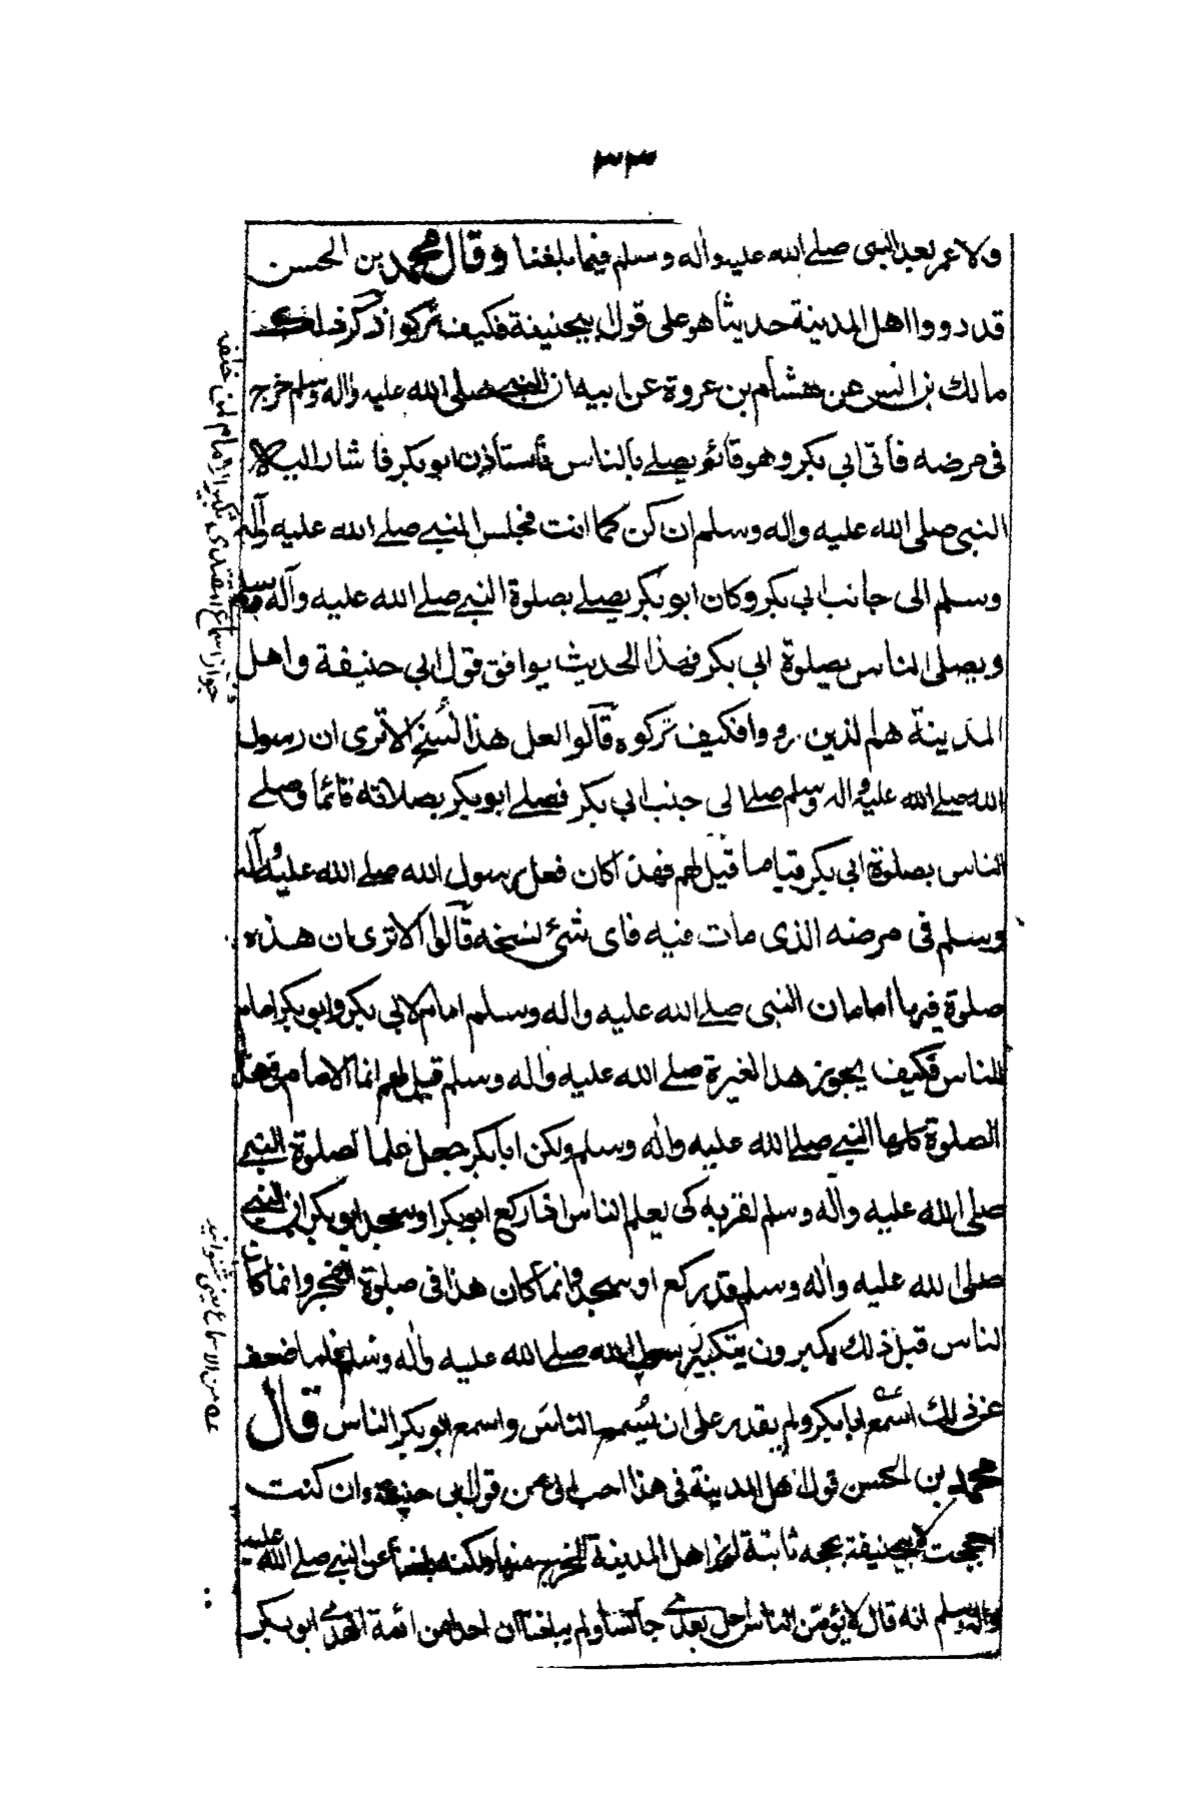 ٣٣
ولا عمر بعد النبى صلے الله عليه واله وسلم فيما بلغنا وقال محمد بن الحسن
قد رووا اهل المدينة حديثا هو على قول ابيحنيفة فكيف تركوا ذكر ذلك
مالك بن انس عن هشام بن عروة عن ابيه ان النبى صلى الله عليه واله وسلم خرج
فى مرضه فأتى ابى بكر وهو قائم يصلے بالناس فأستأذن ابو بكر فاشار اليه
النبى صلى الله عليه واله وسلم ان كن كما انت فجلس النبے صلے الله عليه وآله
وسلم الى جانب ابى بكر وكان ابو بكر يصلے بصلوة النبے صلے الله عليه وآله وسلم
ويصلى الناس بصلوة ابى بكر فهذا الحديث يوافق قول ابى حنيفة واهل
المدينة هم الذين رووا فكيف تركوه قآلوا لعل هذا لنسخ الا ترى ان رسول
الله صلے الله عليه واله وسلم صلے الى جنب ابى بكر فصلے ابو بكر بصلاته قائما وصلے
الناس بصلوة ابى بكر قياما قيل لهم فهذا كان فعل رسول الله صلے الله عليه وآله
وسلم فى مرضه الذى مات فيه فاى شئ نسخه قآلوا الا ترى ان هذه
صلوة فيها امامان النبى صلے الله عليه واله وسلم امام لابى بكر وابو بكر امام
للناس فكيف يجوز هذا لغيره صلے الله عليه واله وسلم قيل لهم انما الامام فى هذه
الصلوة كلها النبے صلے الله عليه واله وسلم ولكن ابا بكر جعل علما لصلوة النبے
صلى الله عليه وآله وسلم لقربه كى يعلم الناس اذا ركع ابو بكر او سجد ابو بكر ان النبے
صلى الله عليه واله وسلم قد ركع او سجد وانما كان هذا فى صلوة الفجر وانما كان
الناس قبل ذلك يكبرون بتكبير رسول الله صلے الله عليه واله وسلم فلما ضعف
عن ذلك اسمع ابا بكر ولم يقدر على ان يسمع الناس واسمع ابو بكر الناس قال
محمد بن الحسن قول اهل المدينة فى هذا احب الى من قول ابى حنيفة وان كنت
احججت لابيحنيفة بحجة ثابتة اهل المدينة عن النبے صلے الله عليه
واله وسلم انه قال لا يؤمن الناس احد بعدى جالسا ولم يبلغنا ان احدا من ائمة الهدى ابو بكر
جواز اسماع المقتدى تكبير الامام لمن خلفه